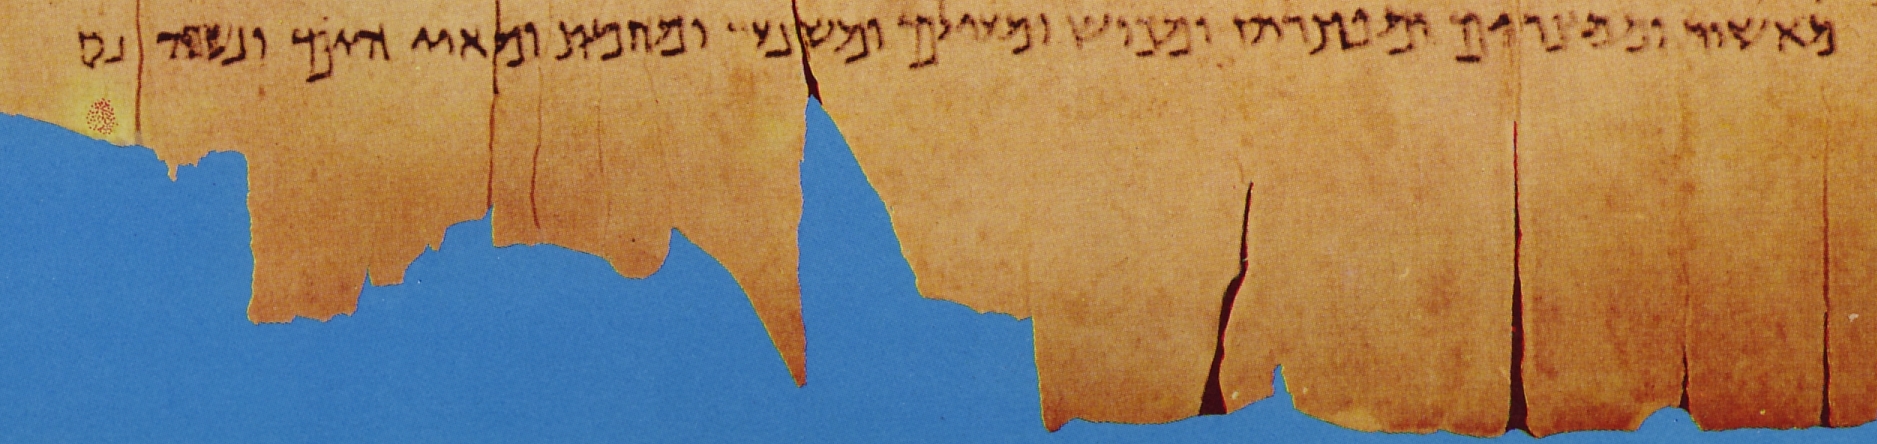 מאשור וממצרים ומפתרוס ומכוש ומעילם ומשנער ומחמת ומאיי הים ונשא נס